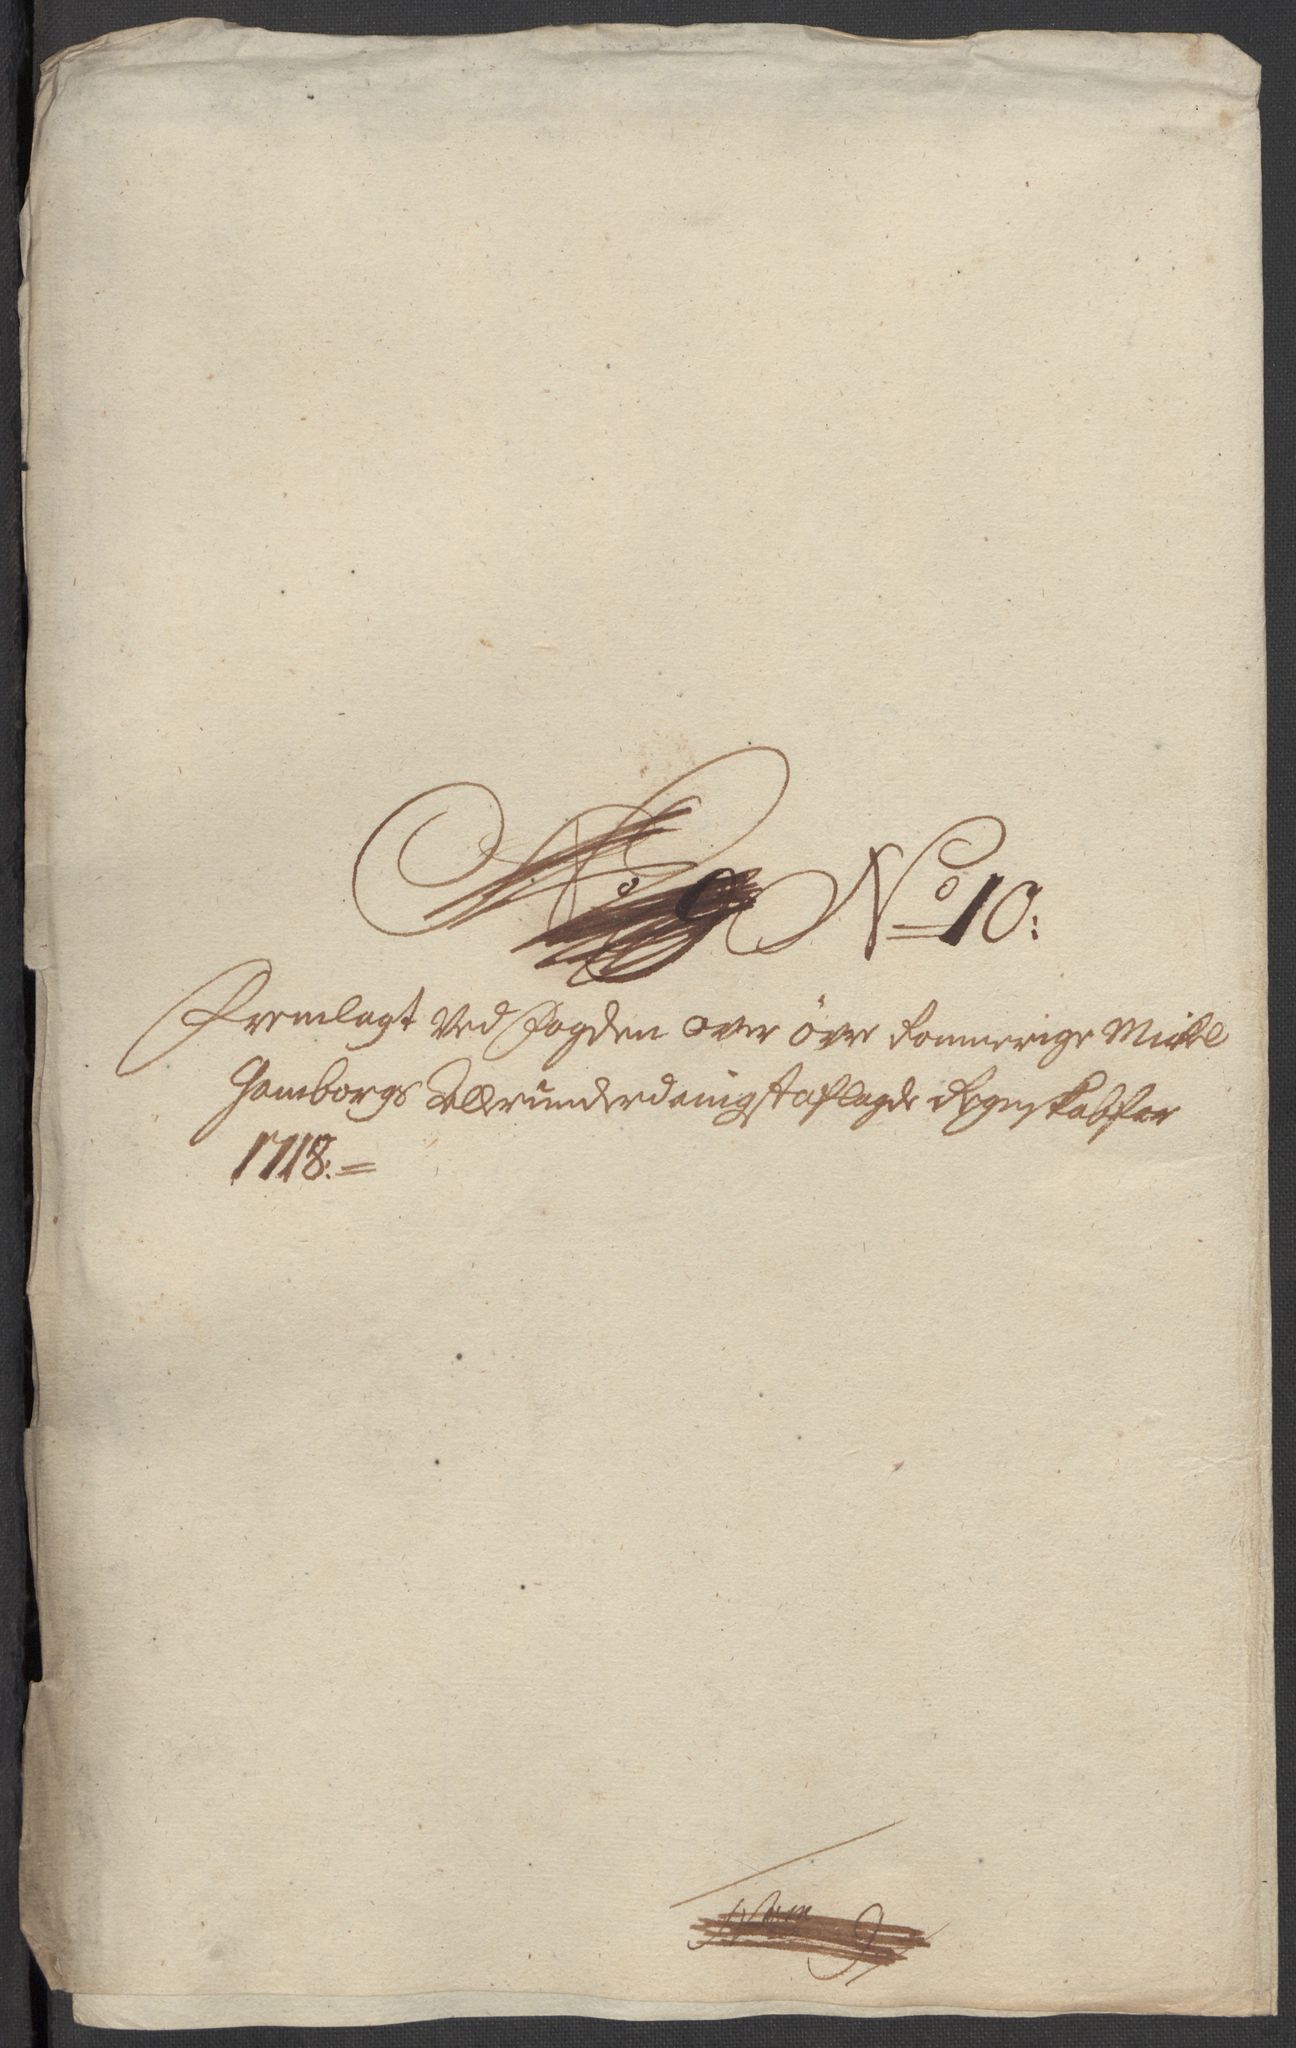 No 10:
Fremlagt Ved Fogden over Övre Rommerige Mickel
Gamborgs Allerunderdanigst aflagde Regenskab for
1718.=